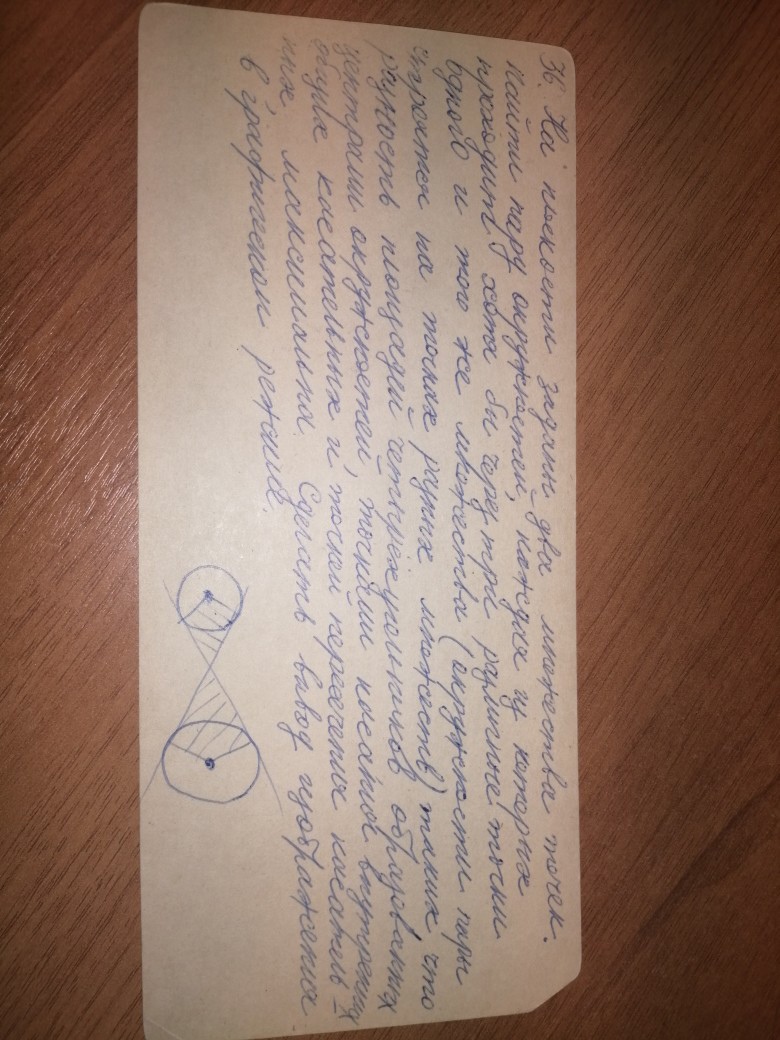 36. На плоскости заданы два множества точек.
Найти пару окружностей, каждая из которых
проходит хотя бы через три различные точки
одного и того же множества (окружности пары
строятся на точках разных множеств) таких, что
разность площадей четырёхугольников, образованных
центрами окружностей, точками касания внутренних
общих касательных и точкой пересечения касатель-
ных, максимальна. Сделать вывод изображения
в графическом режиме.